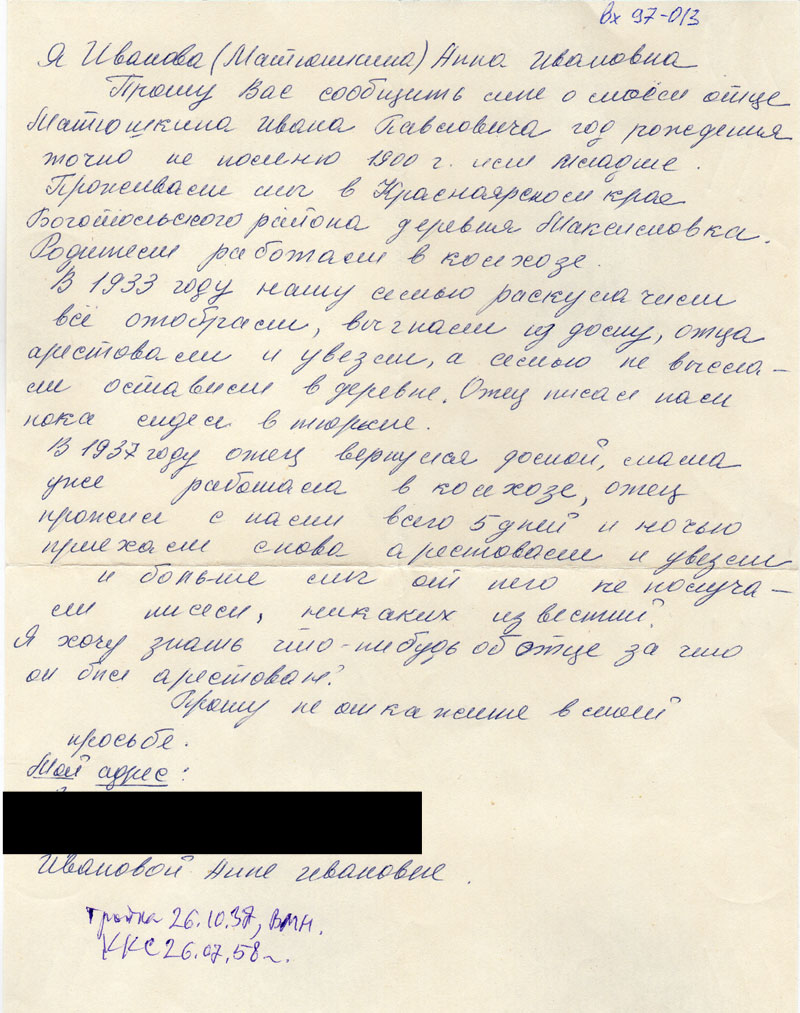 Вх 97-013
Я Иванова (Матюшкина) Анна Ивановна
Прошу Вас сообщить мне о моём отце
Матюшкина Ивана Павловича год рождения
точно не помню 1900 г. или младше.
Проживали мы в Красноярском крае
Боготольского района деревня Максимовка.
Родители работали в колхозе.
В 1933 году нашу семью раскулачили
всё отобрали, выгнали из дому, отца
арестовали и увезли, а семью не высла-
ли оставили в деревне. Отец писал нам
пока сидел в тюрьме.
В 1937 году отец вернулся домой, мама
уже работала в колхозе, отец
прожил с нами всего 5 дней и ночью
приехали снова арестовали и увезли
и больше мы от него не получа-
ли писем, никаких известий.
Я хочу знать что-нибудь об отце за что
он был арестован?
Прошу не откажите в моей
просьбе.
Мой адрес:
Ивановой Анне Ивановне.
тройка 26.10.37, ВМН.
ККС 26.07.58 г.